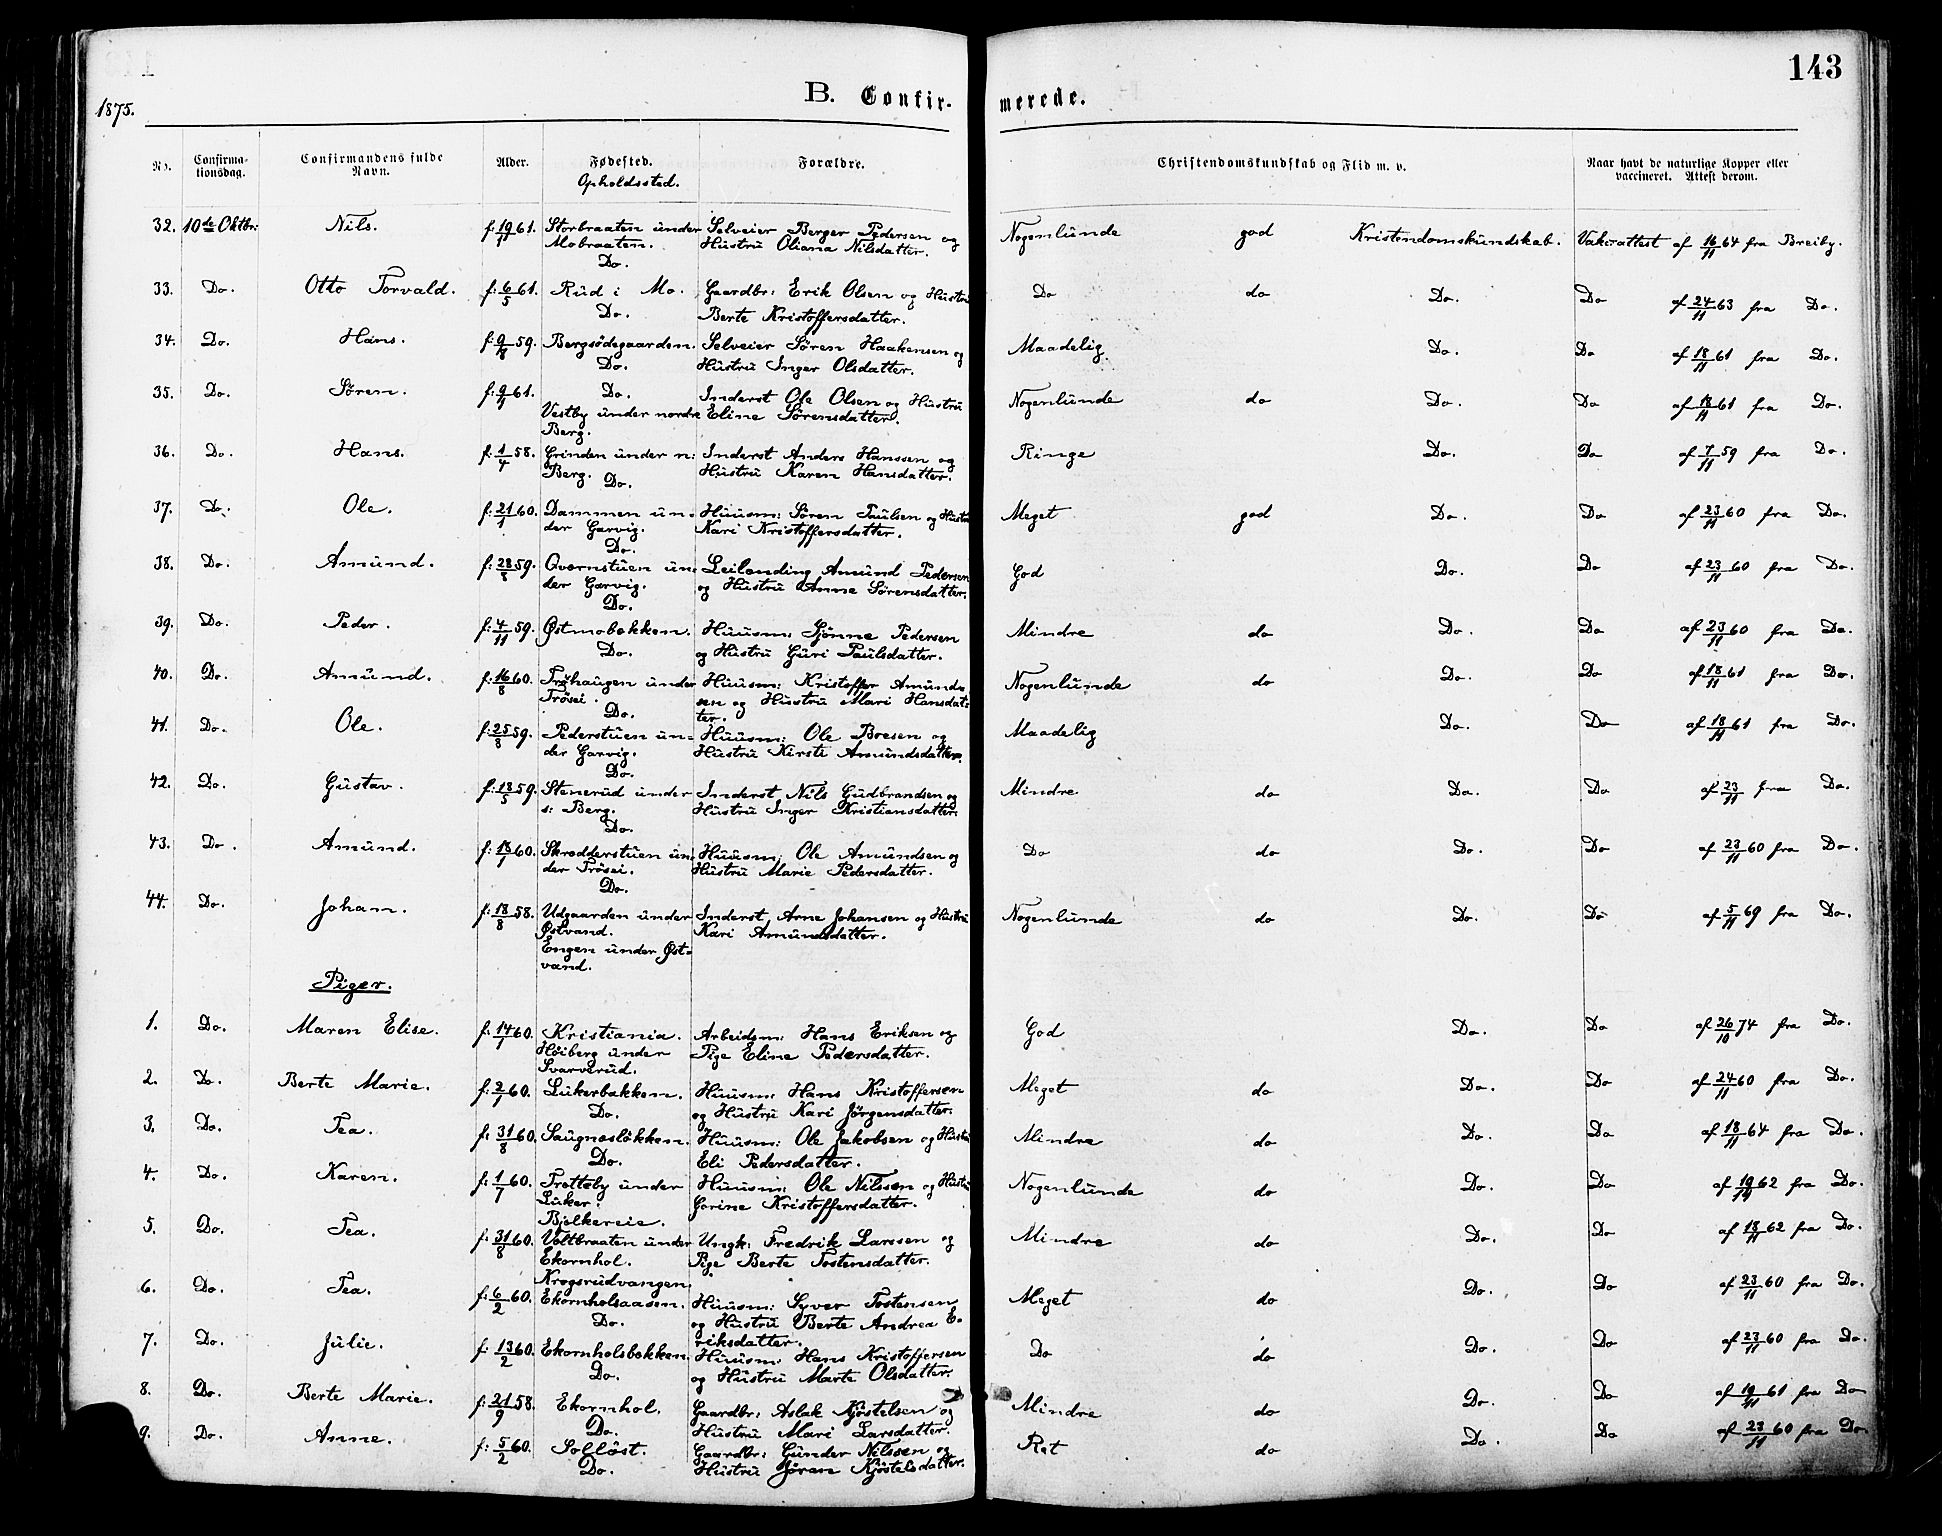 143
1875.
B. Confir- merede.
No. Confirma-tionsdag. Confirmandens fulde Navn. Alder. Fødested. Opholdssted. Forældre. Christendomskundskab og Flid m. v. Naar havt de naturlige Kopper eller vaccineret. Attest derom.
32. 10de Oktbr: Nils. f: 19/11 61. Storbraaten under Selveier Berger Pedersen og Nogenlunde god Kristendomskundskab. Vakc.attest af 16/11 64 fra Breiby.
Mobraaten. Hustru Oliana Nilsdatter.
Do.
33. Do. Otto Torvald. f: 6/5 61. Rud i Mo. Gaardbr: Erik Olsen og Hustru Do do Do. Do af 24/11 63 fra Do.
Do. Berte Kristoffersdatter.
34. Do. Hans. f: 9/8 59. Bergsødegaarden. Selveier Søren Haakensen og Maadelig Do. Do af 18/11 61 fra Do.
Do. Hustru Inger Olsdatter.
35. Do. Søren. f: 9/11 61. Do. Inderst Ole Olsen og Hustru Nogenlunde do Do. Do af 18/11 61 fra Do.
Vestby under nordre Eline Sørensdatter.
Berg.
36. Do. Hans. f: 1/4 58. Grinden under n: Inderst Anders Hanssen og Ringe Do. Do af 7/11 59 fra Do.
Berg. Hustru Karen Hansdatter.
Do.
37. Do. Ole. f: 21/1 60. Dammen un- Huusm: Søren Paulsen og Hustru Meget god Do. Do af 23/11 60 fra Do.
der Garvig. Kari Kristoffersdatter.
Do.
38. Do. Amund. f: 28/8 59. Qvernstuen un: Leilending Amund Pedersen God Do. Do af 23/11 60 fra Do.
der Garvig. og Hustru Anne Sørensdatter.
Do.
39. Do. Peder. f: 4/11 59. Østmobakken. Huusm: Sjønne Pedersen Mindre do Do. Do af 23/11 60 fra Do.
Do. og Hustru Guri Paulsdatter.
40. Do. Amund. f: 16/8 60. Trøhaugen under Huusm: Kristoffer Amund- Nogenlunde do Do. Do af 18/11 61 fra Do.
Trösei. sen og Hustru Mari Hansdat-
Do. ter.
41. Do. Ole. f: 25/8 59. Pederstuen un- Huusm: Ole Boesen og Maadelig Do. Do af 18/11 61 fra Do.
der Garvig. Hustru Kirsti Amundsdatter.
Do.
42. Do. Gustav. f: 18/5 59. Stenerud under Inderst Nils Gudbrandsen og Mindre do Do. Do af 23/11 fra Do.
s: Berg. Hustru Inger Kristiansdatter.
Do.
43. Do. Amund. f: 18/1 60. Skredderstuen un- Huusm: Ole Amundsen og Do do Do. Do af 23/11 60 fra Do.
der Trösei. Hustru Marie Pedersdatter.
Do.
44. Do. Johan. f: 18/8 58. Udgaarden under Inderst, Arne Johansen og Hustru Nogenlunde do Do. Do af 5/11 69 fra Do.
Østvand. Kari Amundsdatter.
Engen under Øst-
vand.
Piger.
1. Do. Maren Elise. f: 14/1 60. Kristiania. Arbeidsm: Hans Eriksen og God Do. Do af 26/10 74 fra Do.
Høiberg under Pige Eline Pedersdatter.
Svarverud.
2. Do. Berte Marie. f: 2/1 60. Lukerbakken. Huusm: Hans Kristoffersen Meget do Do. Do af 24/11 60 fra Do.
Do. og Hustru Kari Jørgensdatter.
3. Do. Tea. f: 31/8 60. Saugnesløkken. Huusm: Ole Jakobsen og Hustru Mindre do Do. Do af 18/11 64 fra Do.
Do. Eli Pedersdatter.
4. Do. Karen. f: 1/7 60. Trotteby under Huusm: Ole Nilssen og Hustru Nogenlunde do Do. Do af 19/11 62 fra Do.
Luker. Gorine Kristoffersdatter.
Bjelkereie.
5. Do. Tea. f: 31/8 60. Voltbraaten under Ungk: Fredrik Larssen og Mindre do Do. Do af 18/11 62 fra Do.
Ekornhol. Pige Berte Tostensdatter.
Krogsrudvangen.
6. Do. Tea. f: 6/2 60. Ekornholsaasen. Huusm: Syver Tostensen Meget do Do. Do af 23/11 60 fra Do.
Do. og Hustru Berte Andrea E-
riksdatter.
7. Do. Julie. f: 13/2 60. Ekornholsbakken. Huusm: Hans Kristoffersen Do do Do. Do af 23/11 60 fra Do.
Do. og Hustru Marte Olsdatter.
8. Do. Berte Marie. f: 21/9 58. Ekornhol. Gaardbr: Aslak Kjøstelsen og Mindre do Do. Do af 19/11 61 fra Do
Do. Hustru Mari Larsdatter.
9. Do. Anne. f: 5/2 60. Solløst. Gaardbr: Gunder Nilssen og Ret do Do. Do af 23/11 60 fra Do.
Do. Hustru Jøran Kjøstelsdatter.